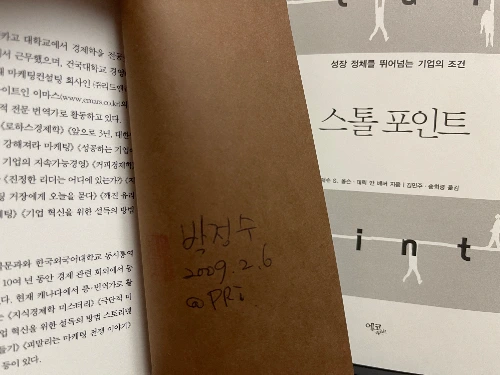 카고 대학교에서 경제학을 전공
에서 근무했으며, 건국대학교 경영
재 마케팅컨설팅 회사인 (주)리드앤
사이트인 이마스(www.emars.co.kr)의
적 전문 번역가로 활동하고 있다.
《로하스경제학》 《앞으로 3년, 대한
강해져라 마케팅》 《성공하는 기업
기업의 지속가능경영》 《커피경제학》
《진정한 리더는 어디에 있는가?》
팅 거장에게 오늘을 묻다》 《깨진 유리
케팅》 《기업 혁신을 위한 설득의 방법
문과와 한국외국어대학교 동시통역
10여 년 동안 경제 관련 회의에서 동
다. 현재 캐나다에서 전문번역가로 활
는 《지식경제학 미스터리》 《극단적 미
업 혁신을 위한 설득의 방법 스토리텔
들기》 《피말리는 마케팅 전쟁 이야기》
등이 있다.
박정수
2009. 2. 6
@PRi
성장 정체를 뛰어넘는 기업의 조건
스톨 포인트
int
에코